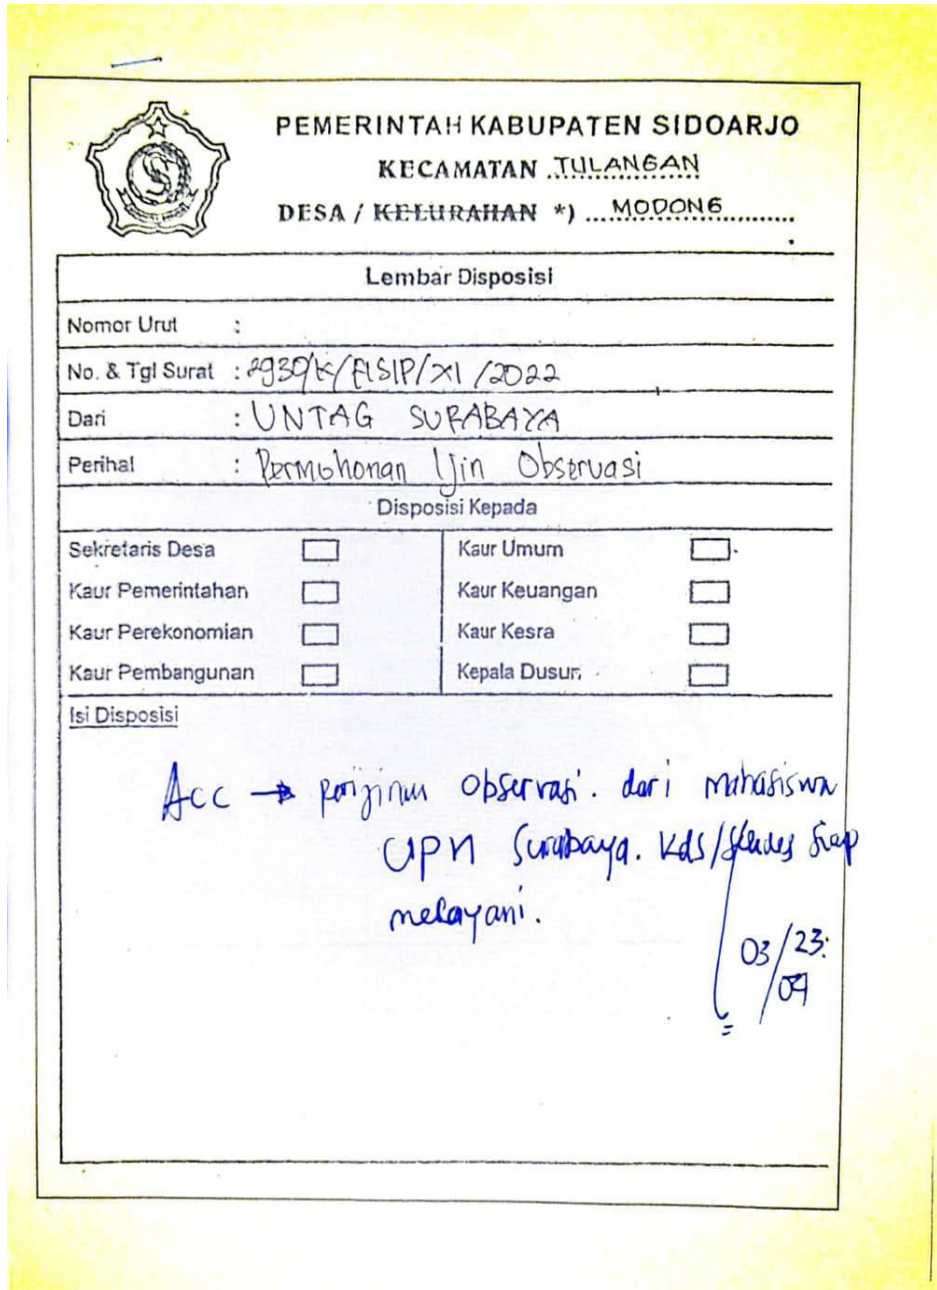 PEMERINTAH KABUPATEN SIDOARJO
KECAMATAN TULANGAN
DESA / KELURAHAN *) MODONG
Lembar Disposisi
Nomor Urut :
No. & Tgl Surat : 2930/K/FISIP/XI/2022
Dari : UNTAG SURABAYA
Perihal : Permohonan Ijin Observasi
Disposisi Kepada
Sekretaris Desa Kaur Umum
Kaur Pemerintahan Kaur Keuangan
Kaur Perekonomian Kaur Kesra
Kaur Pembangunan Kepala Dusun
Isi Disposisi
Acc → perijinan Observasi. dari mahasiswa
UPN Surabaya. Kds/Sekdes Siap
melayani.
03/23: